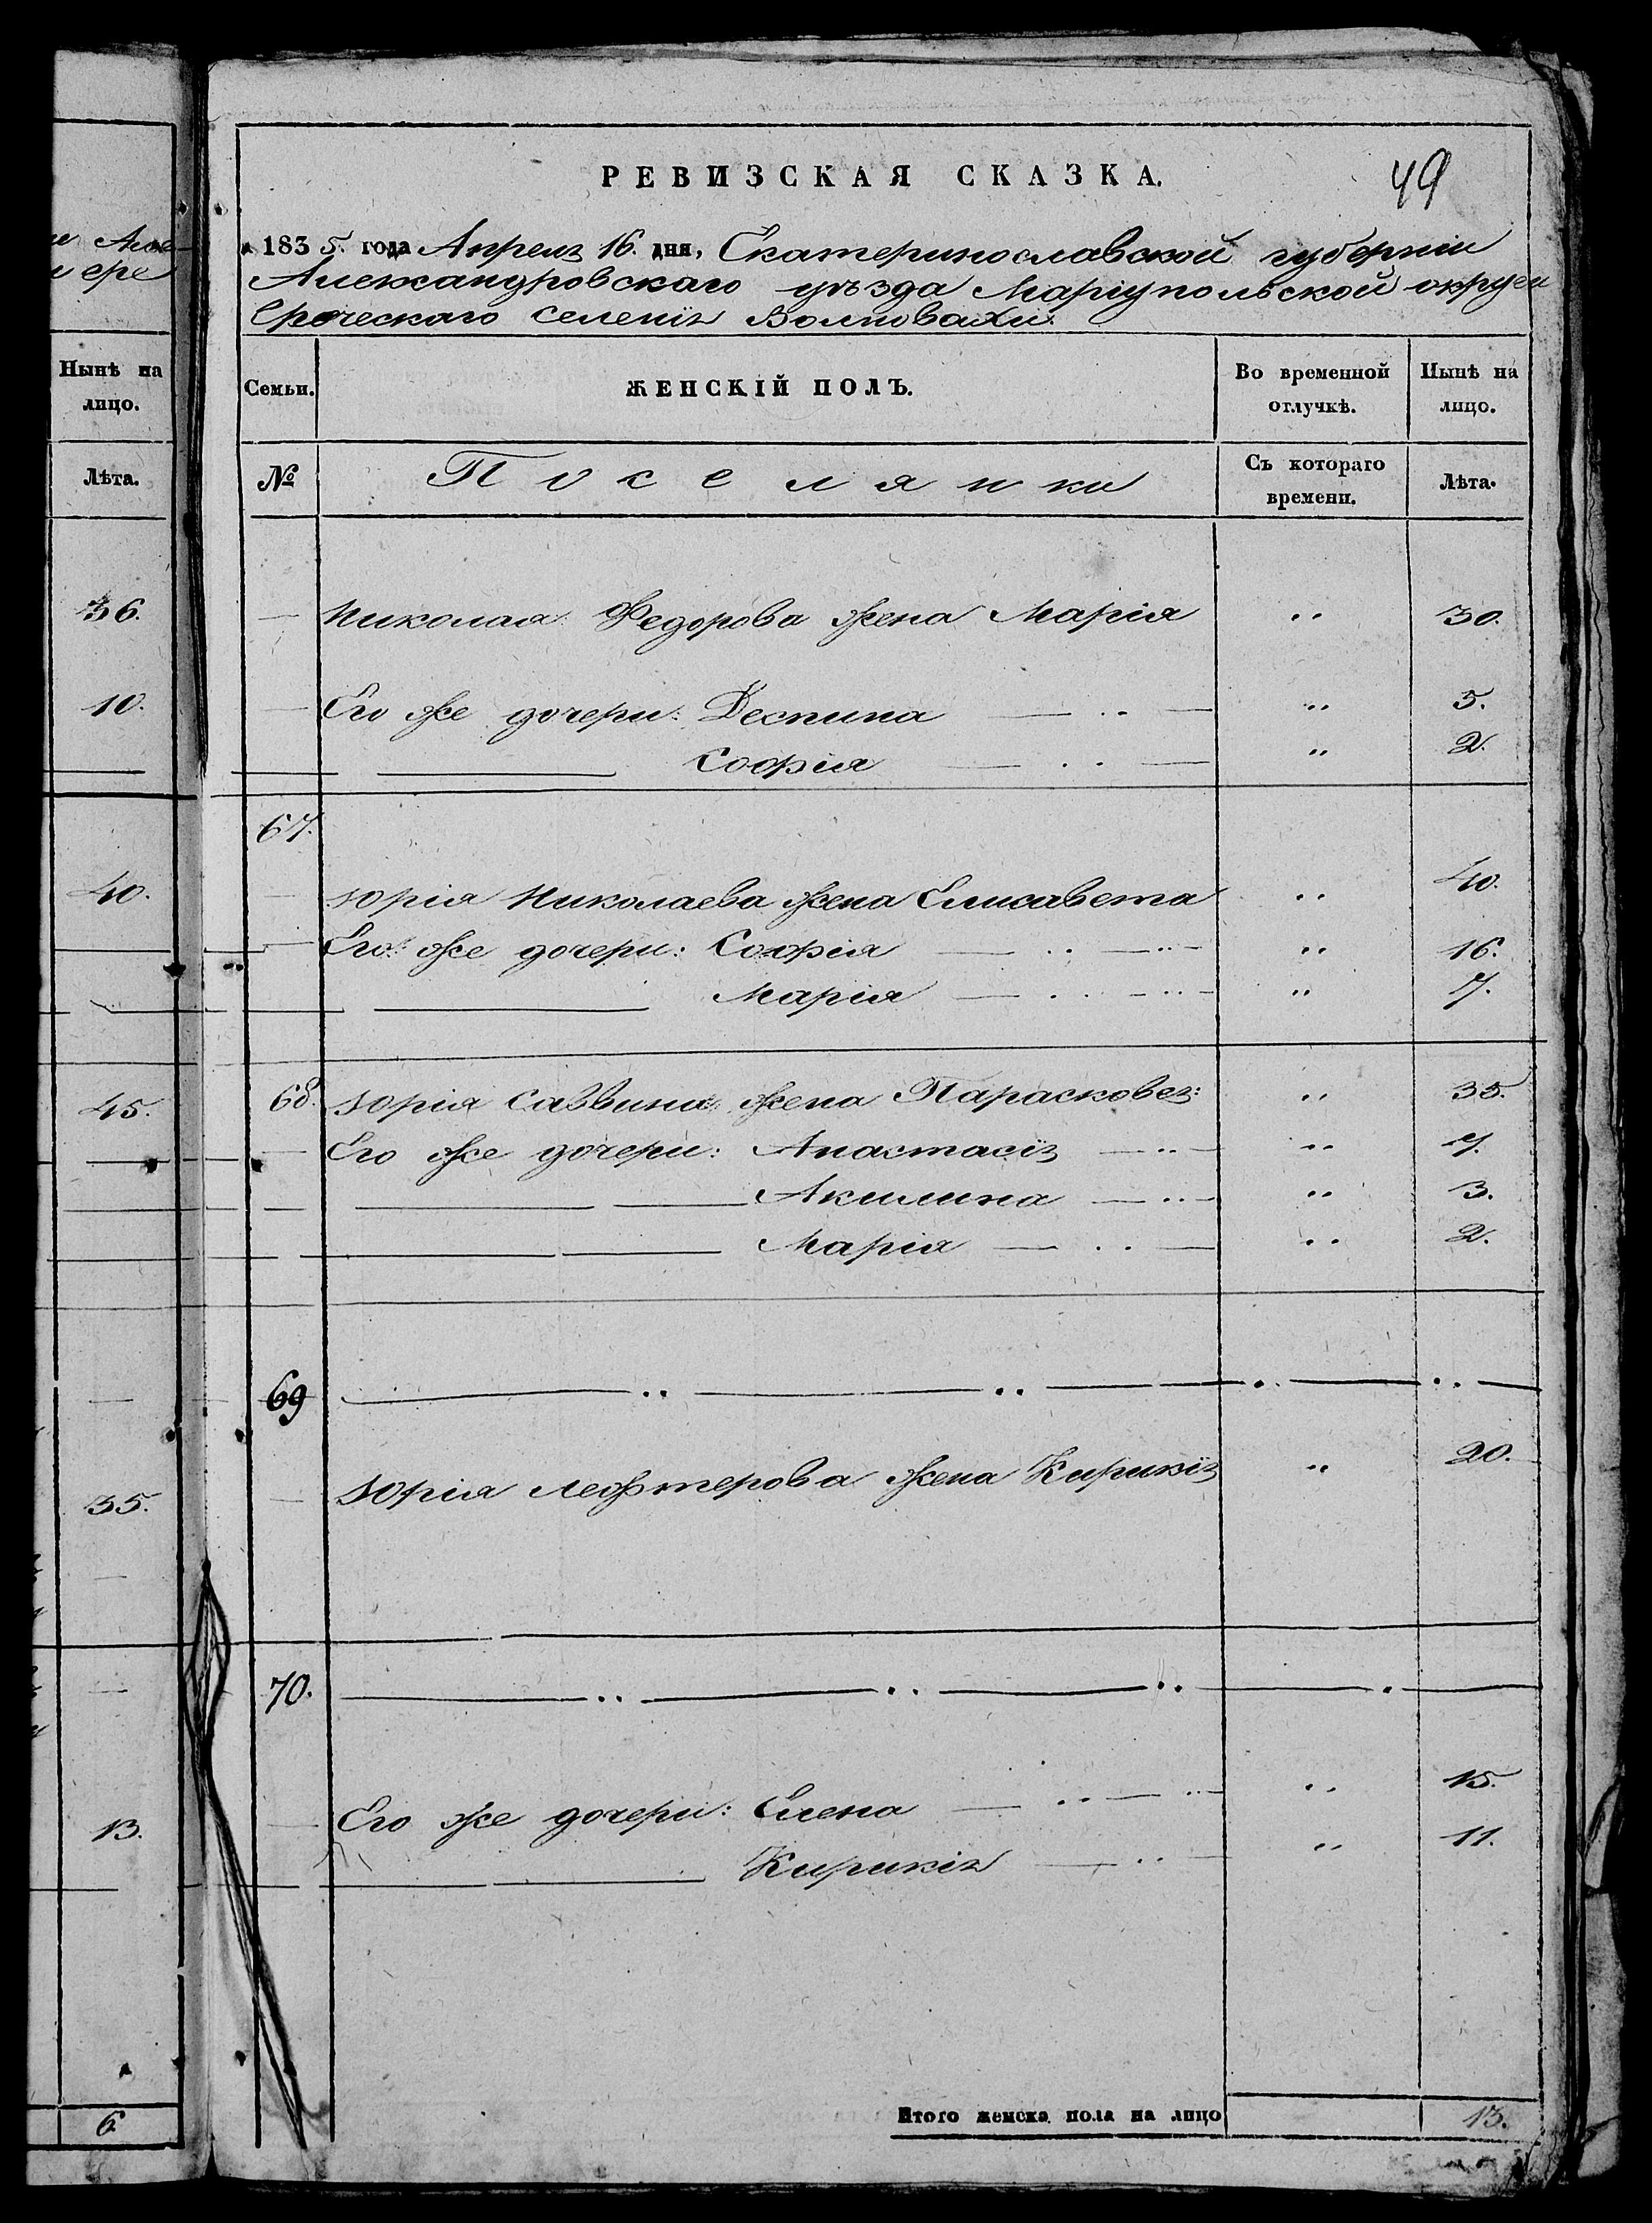 РЕВИЗСКАЯ СКАЗКА.
49
1835. года Апреля 16. дня, Екатеринославской губерніи
Александровскаго уѣзда Маріупольской округи
Греческаго селенія Волновахи:
Семьи.
ЖЕНСКІЙ ПОЛЪ.
Во временной отлучкѣ.
Нынѣ на лицо.
№
Поселянки
Съ котораго времени.
Лѣта.
Николая Федорова жена Марія „ 30.
Его же дочери: Деспина „ 5.
Софія „ 2.
67.
Юрія Николаева жена Елисавета „ 40.
Его же дочери: Софія „ 16.
Марія „ 7.
68. Юрія Саввина жена Парасковея: „ 35.
Его же дочери: Анастасія „ 7.
Акилина „ 3.
Марія „ 2.
69
Юрія Лефтерова жена Кирикія „ 20.
70.
Его же дочери: Елена „ 15.
Кирикія „ 11.
Итого женска пола на лицо 13.
Нынѣ на
лицо.
Лѣта.
36.
10.
40.
45.
35.
13.
6